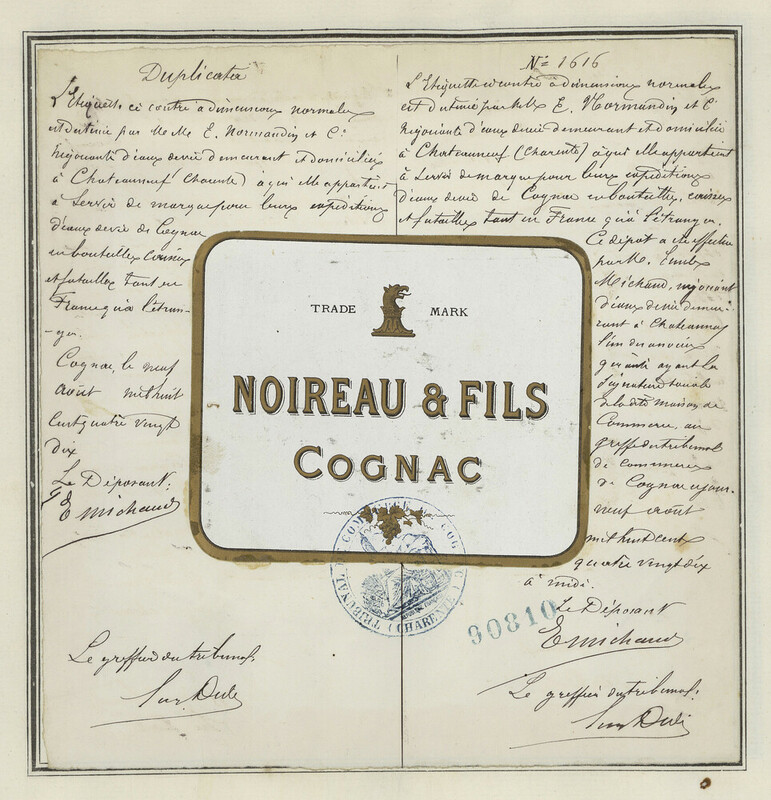 Duplicata
L'Etiquette ci contre a dimensions normales
est détenue par M M. E. Normandin et Cie
Négociants d'eaux devie demeurant et domiciliés
à Chateauneuf Charente) à qui elle appartient
à Servir de marque pour leurs expéditions
d'eaux de vie de Cognac
en bouteilles caisses
et futailles tant en
France qu'à l'étran-
-ger.
Cognac, le neuf
août mil huit
cent quatre vingt
dix
Le Déposant:
E Michaud
Le greffier du tribunal,
No 1616
L'Etiquette ci contre a dimensions normales
est détenue par MM E. Normandin et Cie
Négociants d'eaux devie demeurant et domiciliés
à Chateauneuf (Charente) à qui elle appartient
à Servir de marque pour leurs expéditions
d'eaux devie de Cognac en bouteilles, caisses
et futailles tant en France qu'à l'étranger.
Ce dépot a été effectué
par M. Emile
Michaud, négociant
d'eaux devie demeu-
rant à Chateauneuf
l'un des anciens
gérants ayant la
signature sociale
de la dite maison de
Commerce, au
greffe du tribunal
de commerce
de Cognac ce jour.
neuf août
mil huit cent
quatre vingt dix
à midi.
Le Déposant
E Michaud
Le greffier du tribunal:
TRADE MARK
NOIREAU & FILS
COGNAC
TRIBUNAL DE COMMERCE COGNAC (CHARENTE)
30810